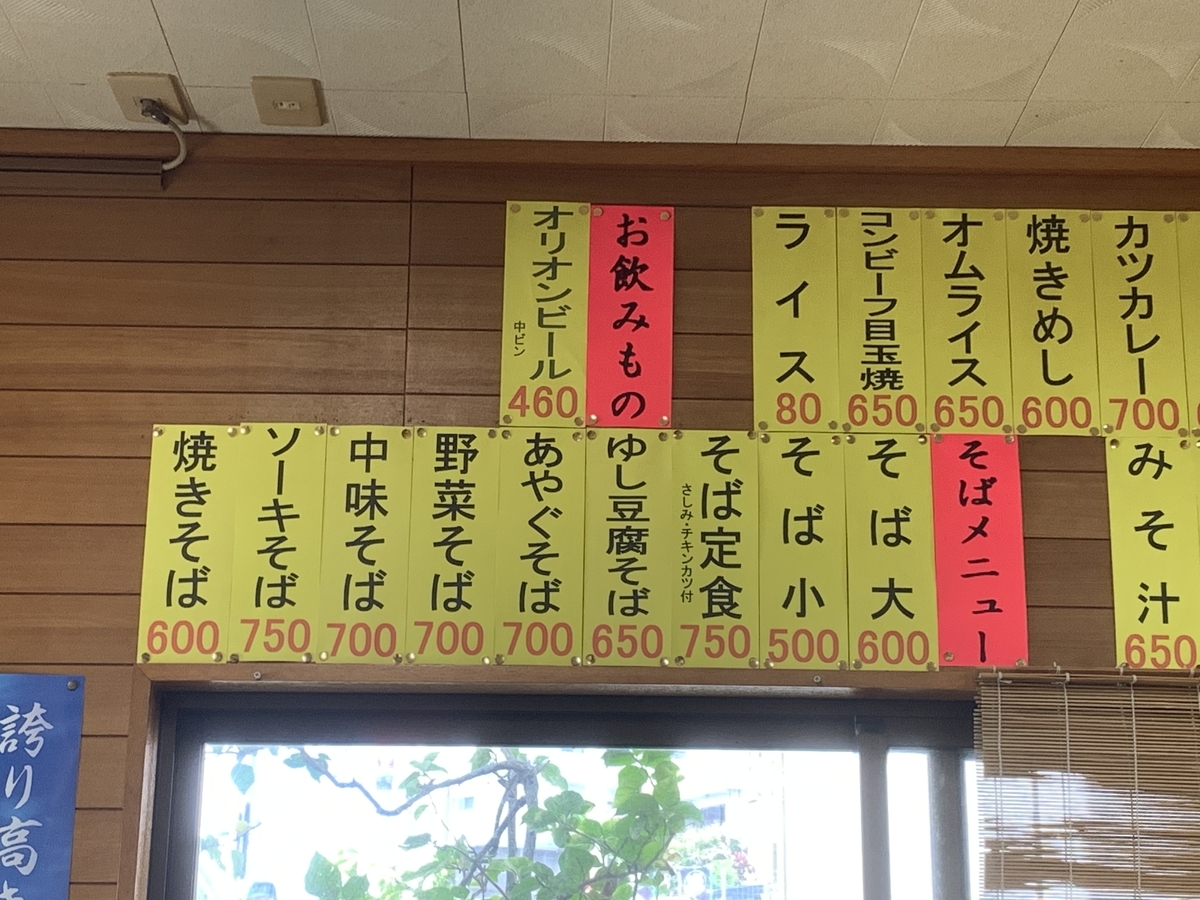 カツカレー
700
焼きめし
600
オムライス
650
コンビーフ目玉焼
650
ライス
80
お飲みもの
オリオンビール
中ビン
460
みそ汁
650
そばメニュー
そば大
600
そば小
500
そば定食
さしみ・チキンカツ付
750
ゆし豆腐そば
650
あやぐそば
700
野菜そば
700
中味そば
700
ソーキそば
750
焼きそば
600
誇り高